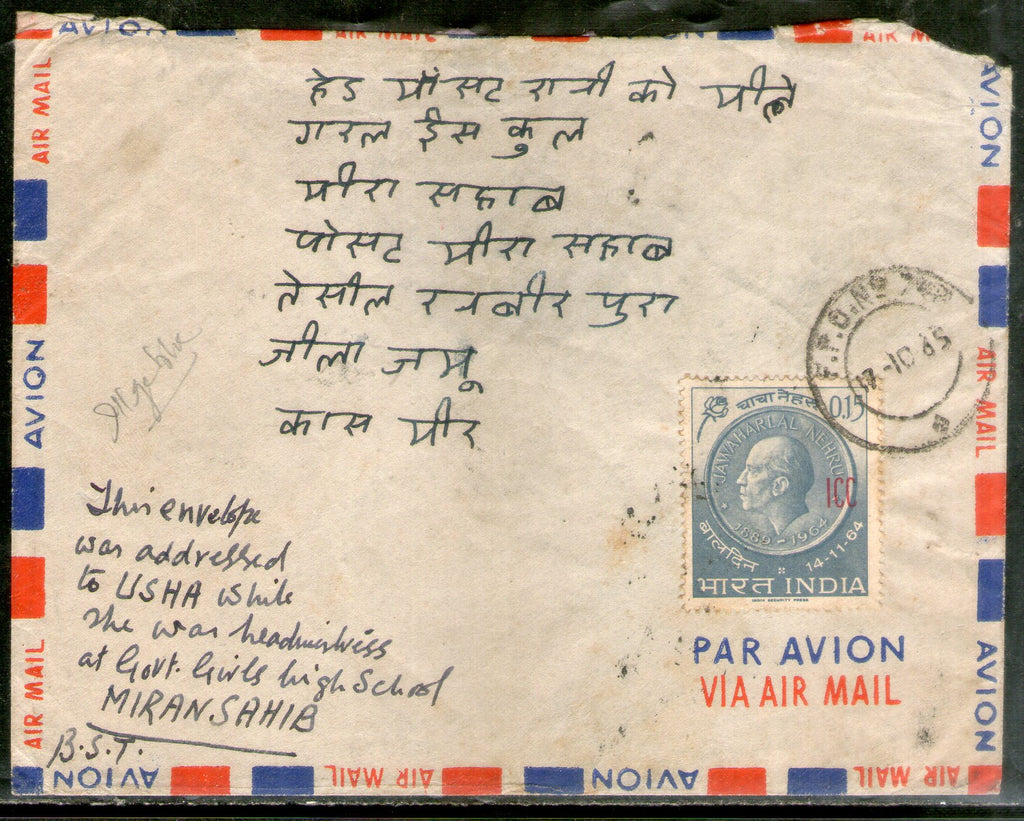 AVION AIR MAIL AIR M
हेड मॉसट रानी को मीले
गरल ईस कुल
मीरा सहाब
पोसट मीरा सहाब
तेसील रनबीर पुरा
जीला जमू
कास मीर
This envelope
was addressed
to USHA while
she was headmistress
at Govt. Girls high School
MIRAN SAHIB
B.S.T.
F.P.O. No
17-10 65
चाचा नेहरू 0.15
JAWAHARLAL NEHRU
ICC
1889-1964
बालदिन 14-11-64
भारत INDIA
INDIA SECURITY PRESS
PAR AVION
VIA AIR MAIL
AIR MAIL
AVION
AIR MAIL
AVION
AIR MAIL
AVION
AVION AIR MAIL AIR MAIL AVION AIR MAIL